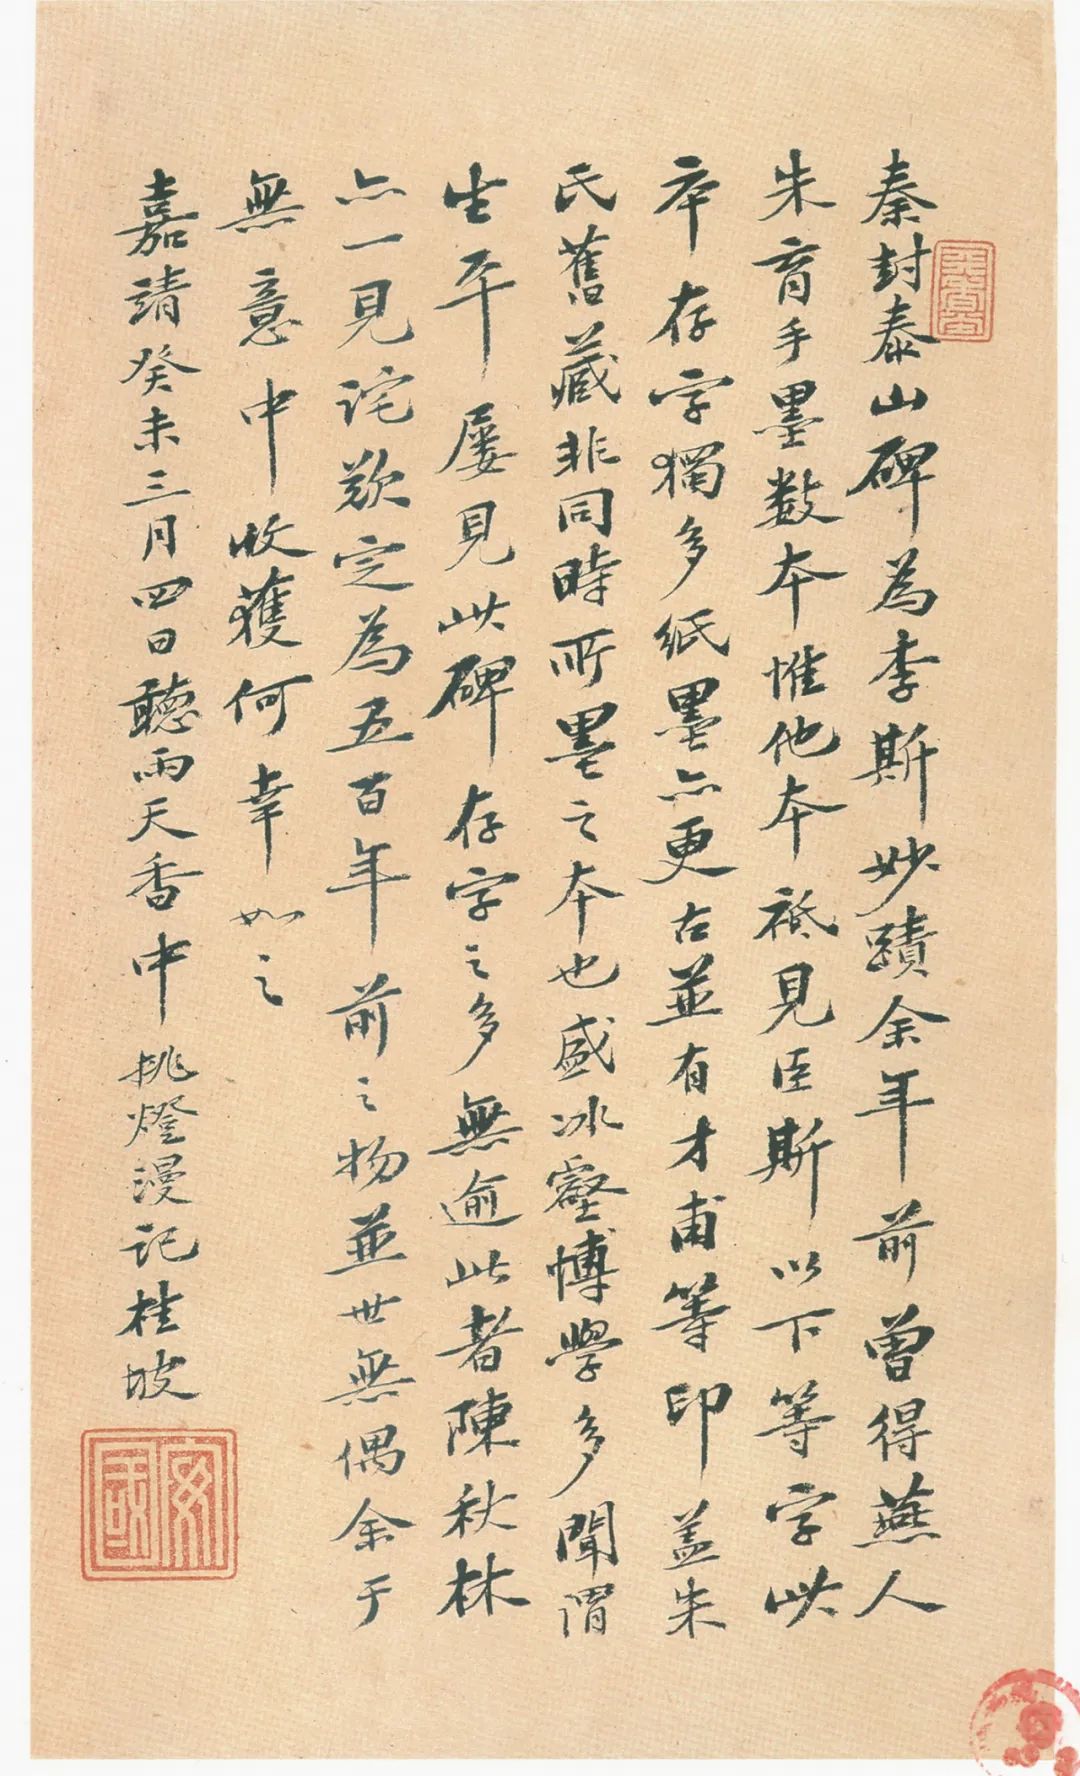 秦封泰山碑為李斯妙蹟余年前曾得燕人
朱育手墨数本惟他本祇見臣斯以下等字此
本存字獨多紙墨亦更古並有才甫等印盖朱
氏舊藏非同時所墨之本也盛冰壑博學多聞謂
生平屡見此碑存字之多無逾此者陳秋林
亦一見詫歎定為五百年前之物並世無偶余于
無意中收獲何幸如之
嘉靖癸未三月四日聽雨天香中挑燈漫記桂坡
安國